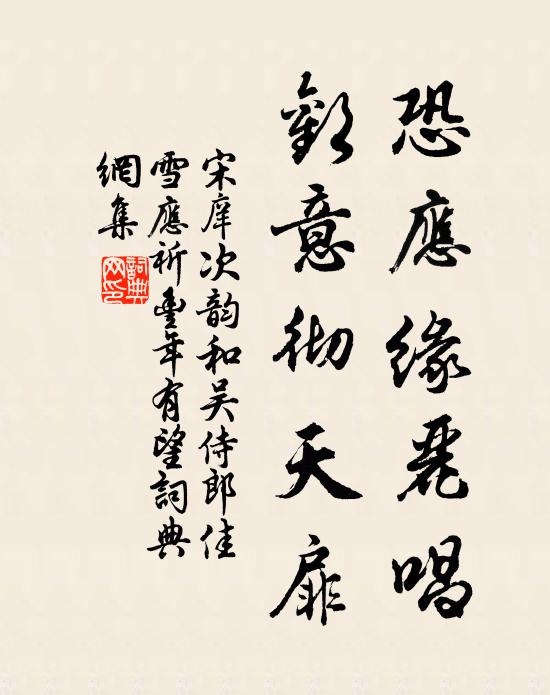 恐應緣麗唱
歡意彻天扉
宋庠次韵和吴侍郎佳
雪應祈豐年有望詞典
網集
詞典网印